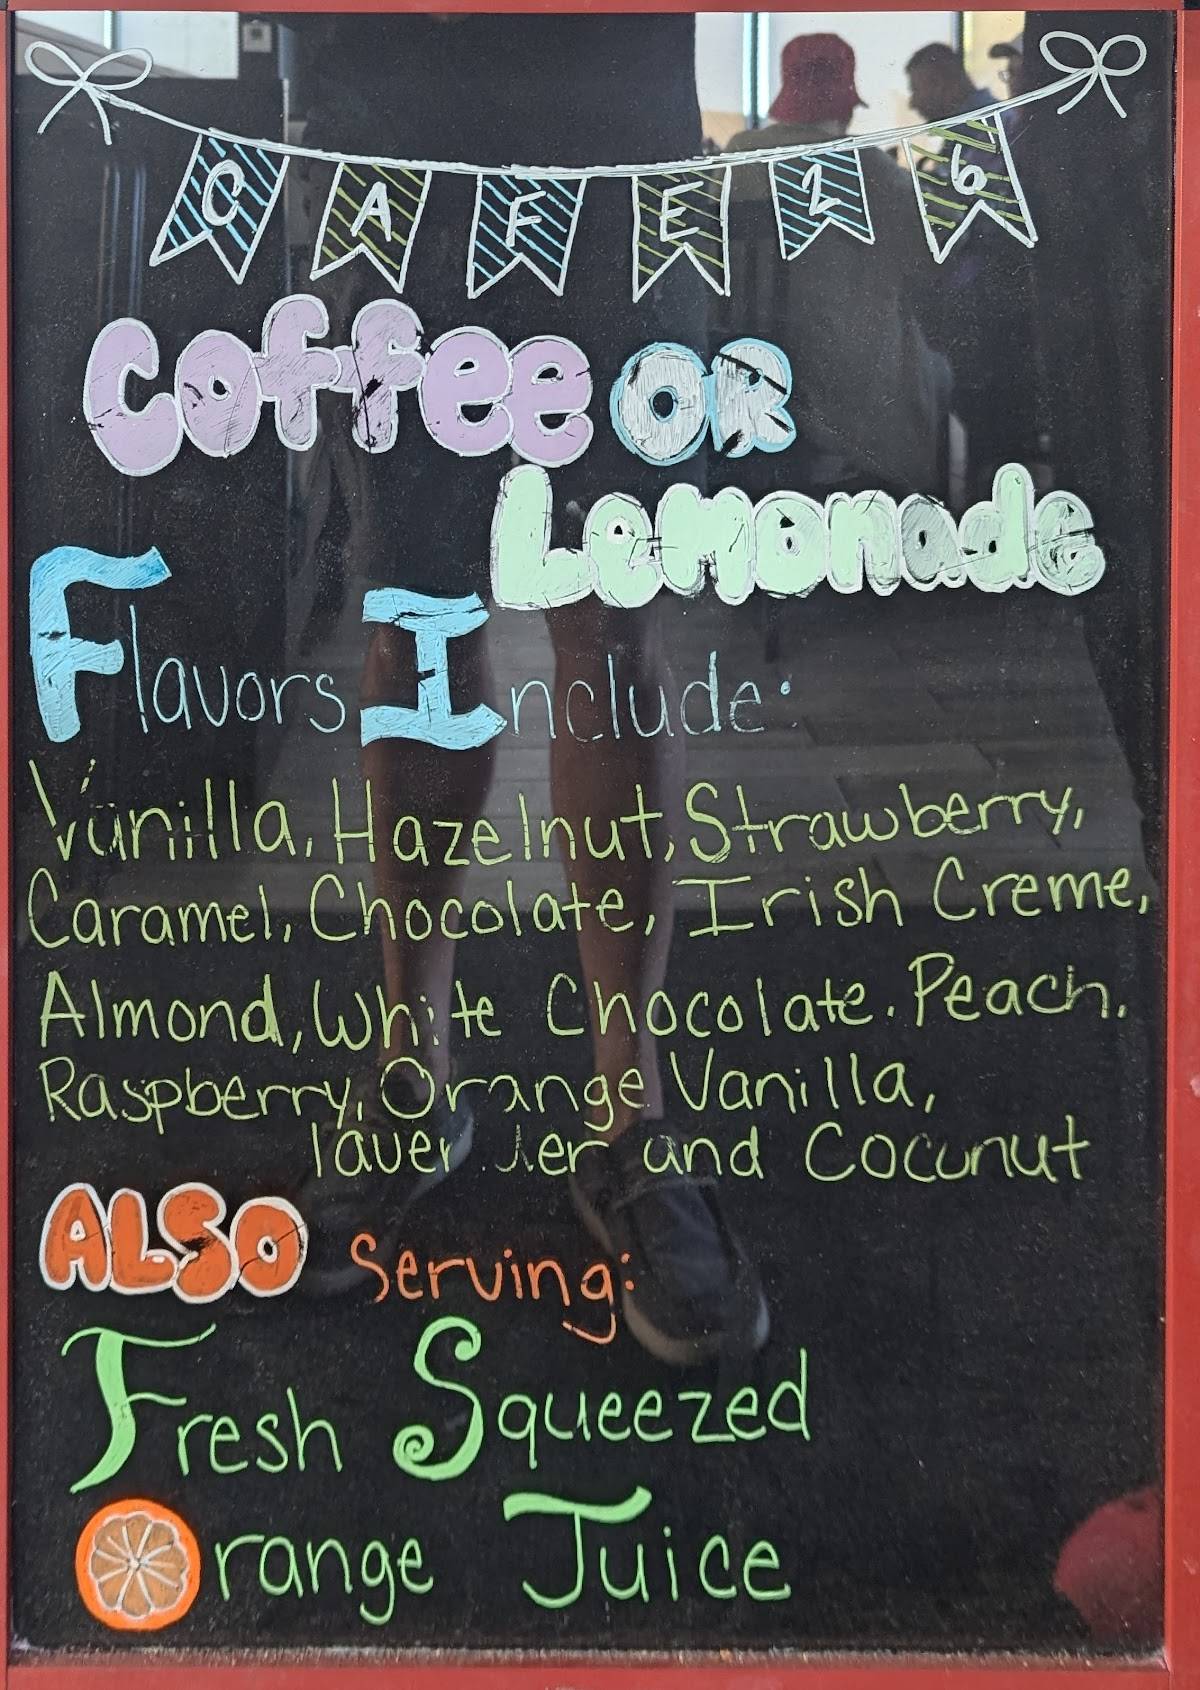 CAFE 26
Coffee OR
Lemonade
Flavors Include:
Vanilla, Hazelnut, Strawberry,
Caramel, Chocolate, Irish Creme,
Almond, White Chocolate. Peach.
Raspberry, Orange Vanilla,
lavender and Coconut
ALSO Serving:
Fresh Squeezed
Orange Juice